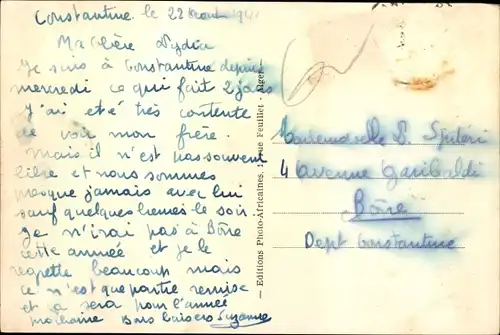 Constantine le 22 Aout 194
Ma Chère Lydia
Je suis à Constantine depuis
mercredi ce qui fait 2 jours
J'ai eté très contente
de voir mon frère.
Mais il n'est pas souvent
libre et nous sommes
presque jamais avec lui
sauf quelques heures le soir.
Je n'irai pas à Bône
cette année et je le
regrette beaucoup mais
ce n'est que partie remise
et ça sera pour l'année
prochaine Bons baisers Suzanne
— Editions Photo-Africaines, rue Feuillet - Alger —
Mademoiselle L.
4 Avenue Garibaldi
Bône
Dept Constantine